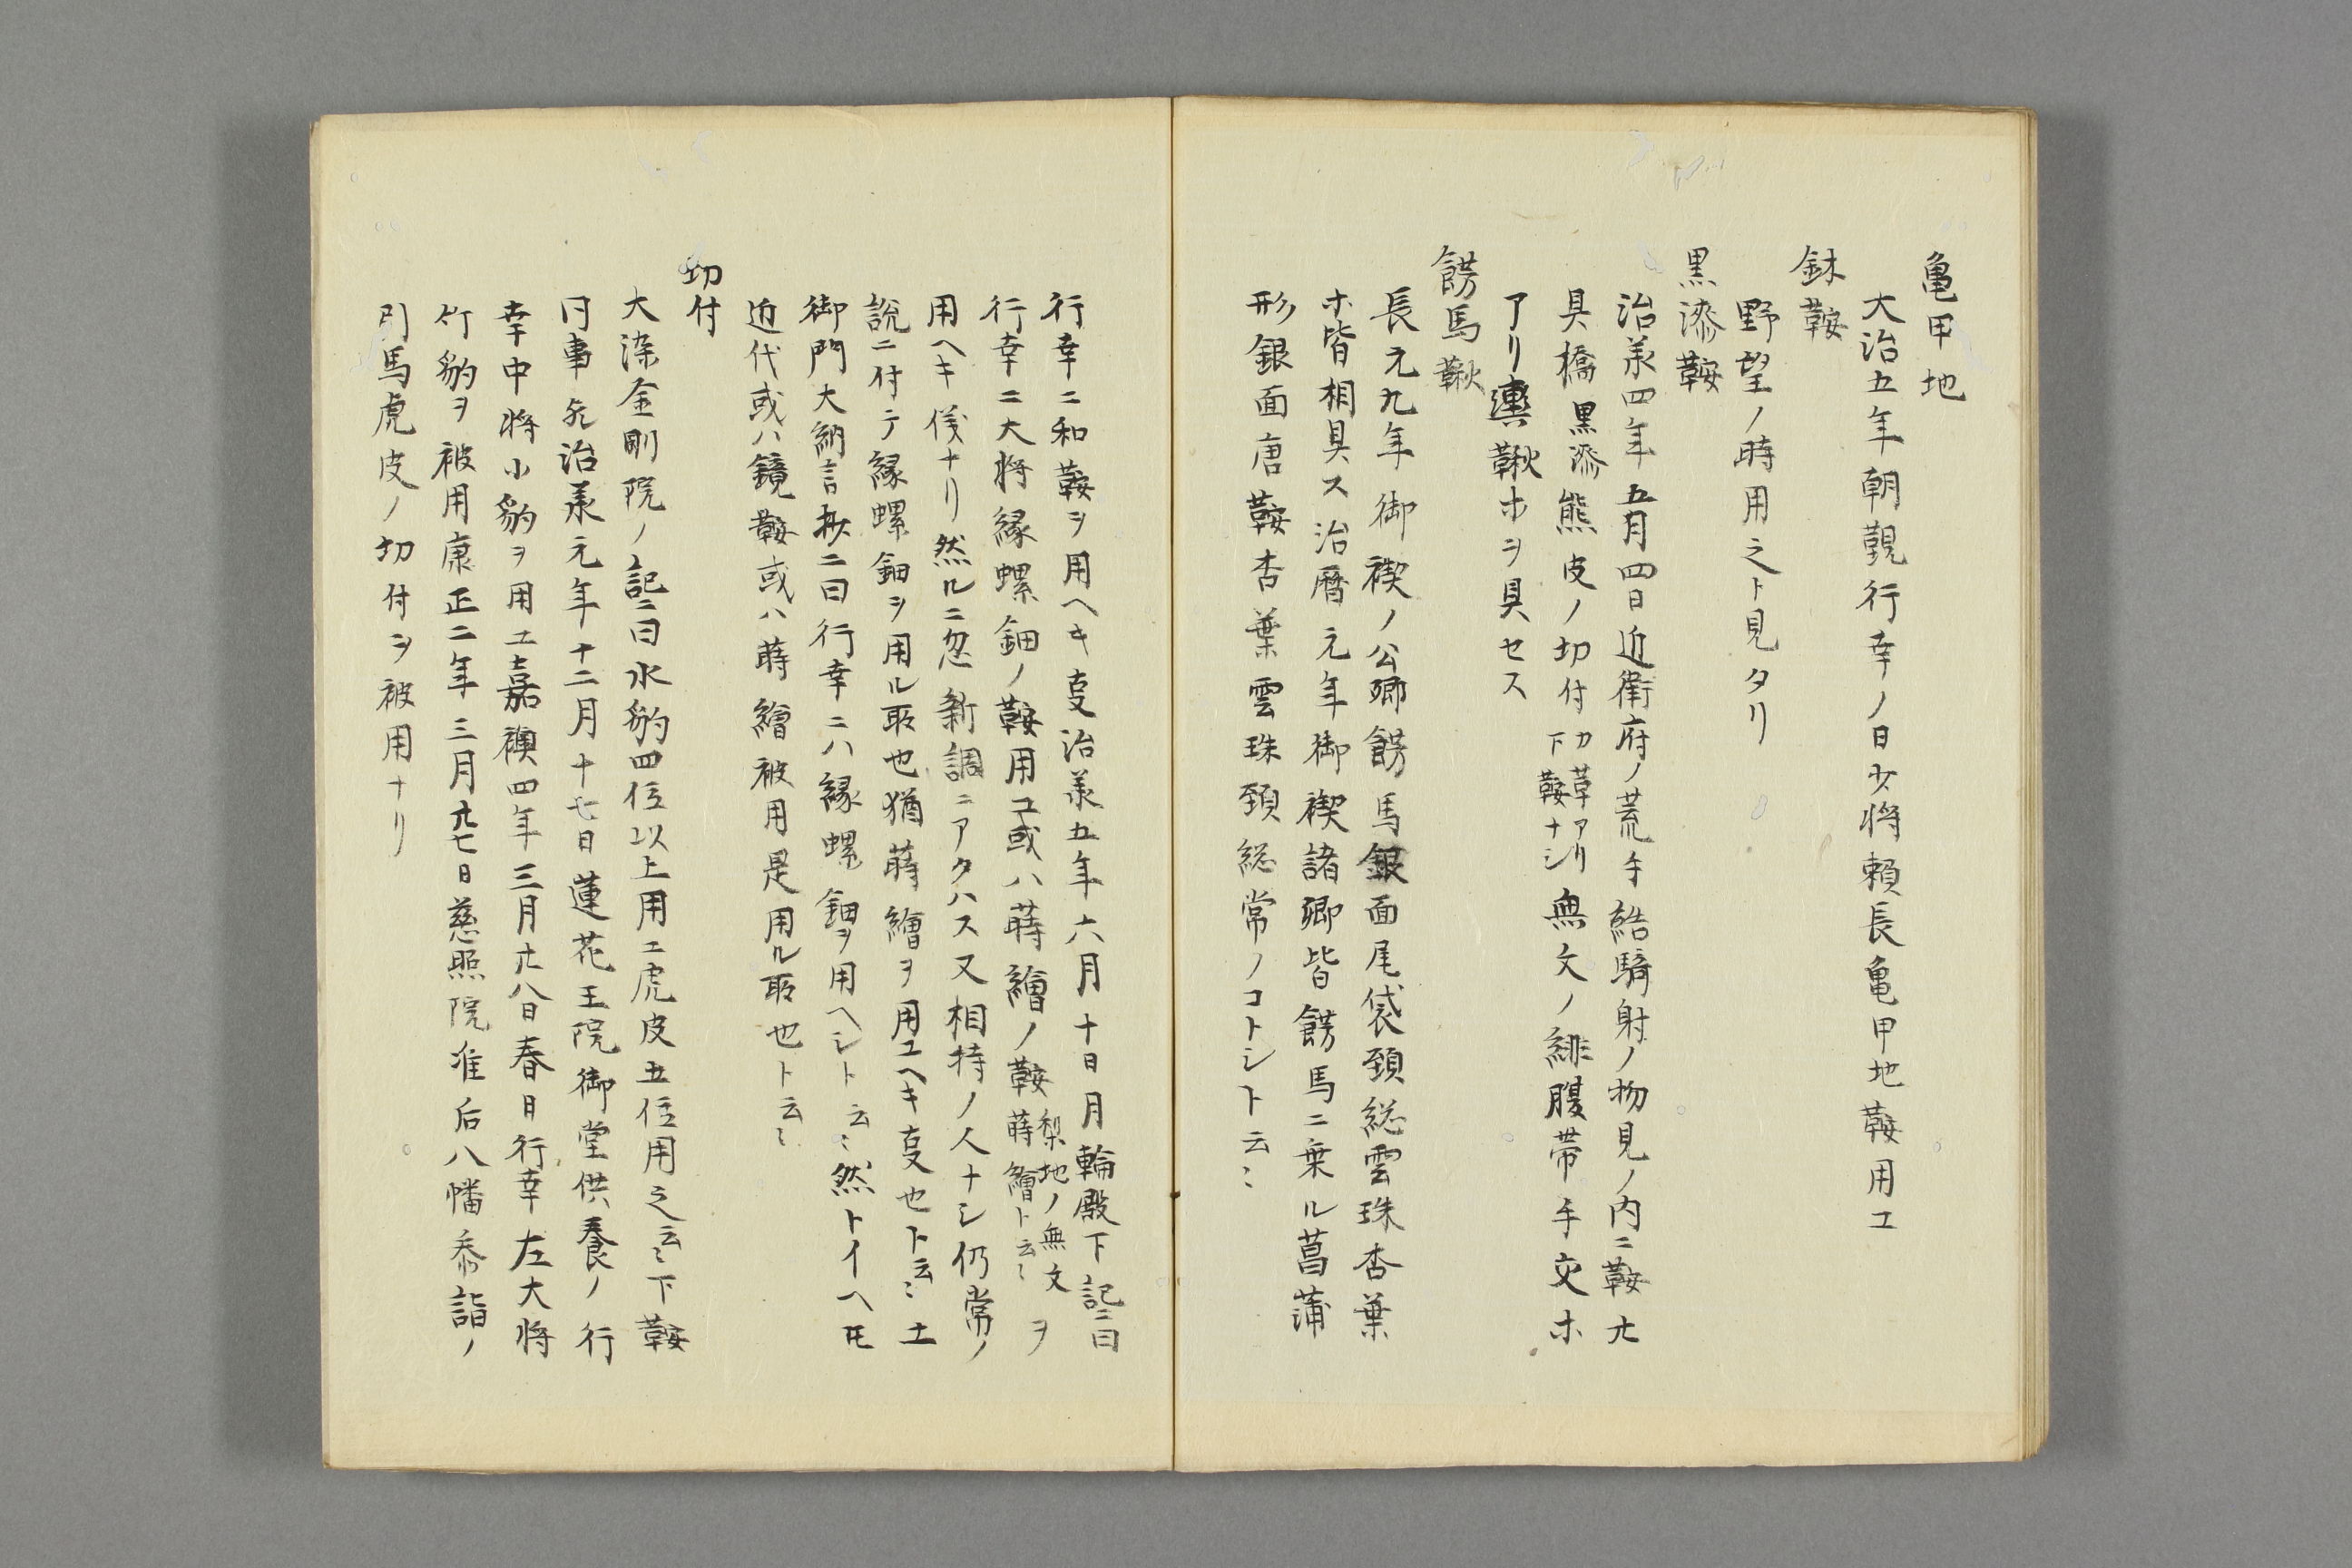 亀甲地
大治五年朝覲行幸ノ日少将頼長亀甲地鞍用エ
鉢鞍
野望ノ時用之ト見タリ
黒漆鞍
治承四年五月四日近衛府ノ荒手結騎射ノ物見ノ内ニ鞍尤
具橋黒漆熊皮ノ切付力草アリ下鞍ナシ無文ノ緋腹帯手交ホ
アリ轡鞦ホヲ具セス
餝馬鞦
長元九年御禊ノ公卿餝馬銀面尾袋頚総雲珠杏葉
ホ皆相具ス治暦元年御禊諸卿皆餝馬ニ乗ル菖蒲
形銀面唐鞍杏葉雲珠頚総常ノコトシト云〻
行幸ニ和鞍ヲ用ヘキ叓治承五年六月十日月輪殿下記ニ曰
行幸ニ大将縁螺鈿ノ鞍用エ或ハ蒔繪ノ鞍梨地ノ無文蒔繪ト云〻ヲ
用ヘキ儀ナリ然ルニ忽新調ニアタハス又相持ノ人ナシ仍常ノ
説ニ付テ縁螺鈿ヲ用ル㪽也猶蒔繪ヲ用エヘキ叓也ト云〻土
御門大納言抄ニ曰行幸ニハ縁螺鈿ヲ用ヘシト云〻然トイヘ𪜈
近代或ハ鏡鞍或ハ蒔繪被用是用ル㪽也ト云〻
切付
大染金剛院ノ記ニ曰水豹四位以上用エ虎皮五位用之云〻下鞍
同事飛治承元年十二月十七日蓮花王院御堂供養ノ行
幸中将小豹ヲ用エ嘉禎四年三月廿八日春日行幸左大将
竹豹ヲ被用康正二年三月廿七日慈照院准后八幡参詣ノ
引馬虎皮ノ切付ヲ被用ナリ